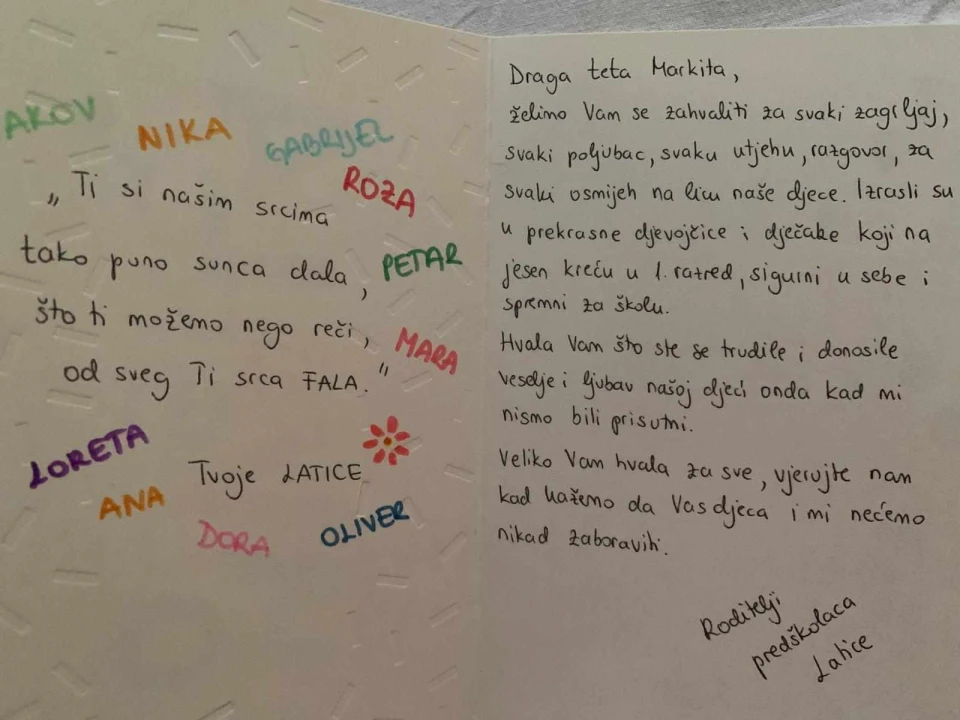 AKOV
NIKA
GABRIJEL
ROZA
„Ti si našim srcima
tako puno sunca dala,
PETAR
što ti možemo nego reči,
MARA
od sveg Ti srca FALA."
LORETA
Tvoje LATICE
ANA
DORA
OLIVER
Draga teta Markita,
želimo Vam se zahvaliti za svaki zagrljaj,
svaki poljubac, svaku utjehu, razgovor, za
svaki osmijeh na licu naše djece. Izrasli su
u prekrasne djevojčice i dječake koji na
jesen kreću u 1. razred, sigurni u sebe i
spremni za školu.
Hvala Vam što ste se trudile i donosile
veselje i ljubav našoj djeci onda kad mi
nismo bili prisutni.
Veliko Vam hvala za sve, vjerujte nam
kad kažemo da Vas djeca i mi nećemo
nikad zaboraviti.
Roditelji
predškolaca
Latice